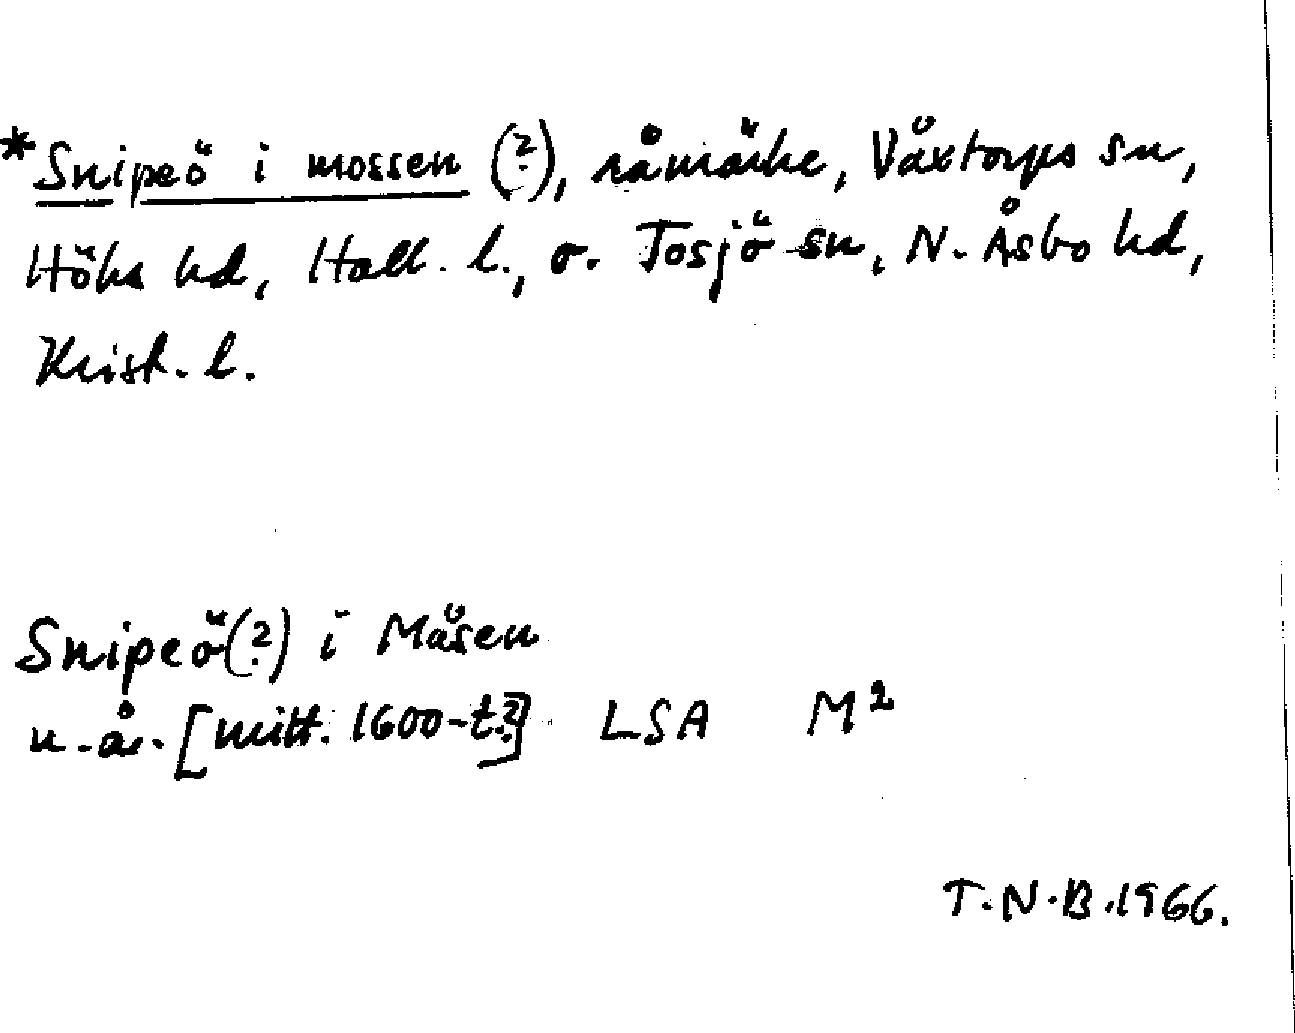 *Snipeö i mossen (?), råmärke, Våxtorps sn,
Höks hd, Hall. l., o. Tosjö sn, N. Åsbo hd,
Krist. l.
Snipeö(?) i Måsen
u. år. [mitt. 1600-t.?] LSA M²
T.N.B. 1966.